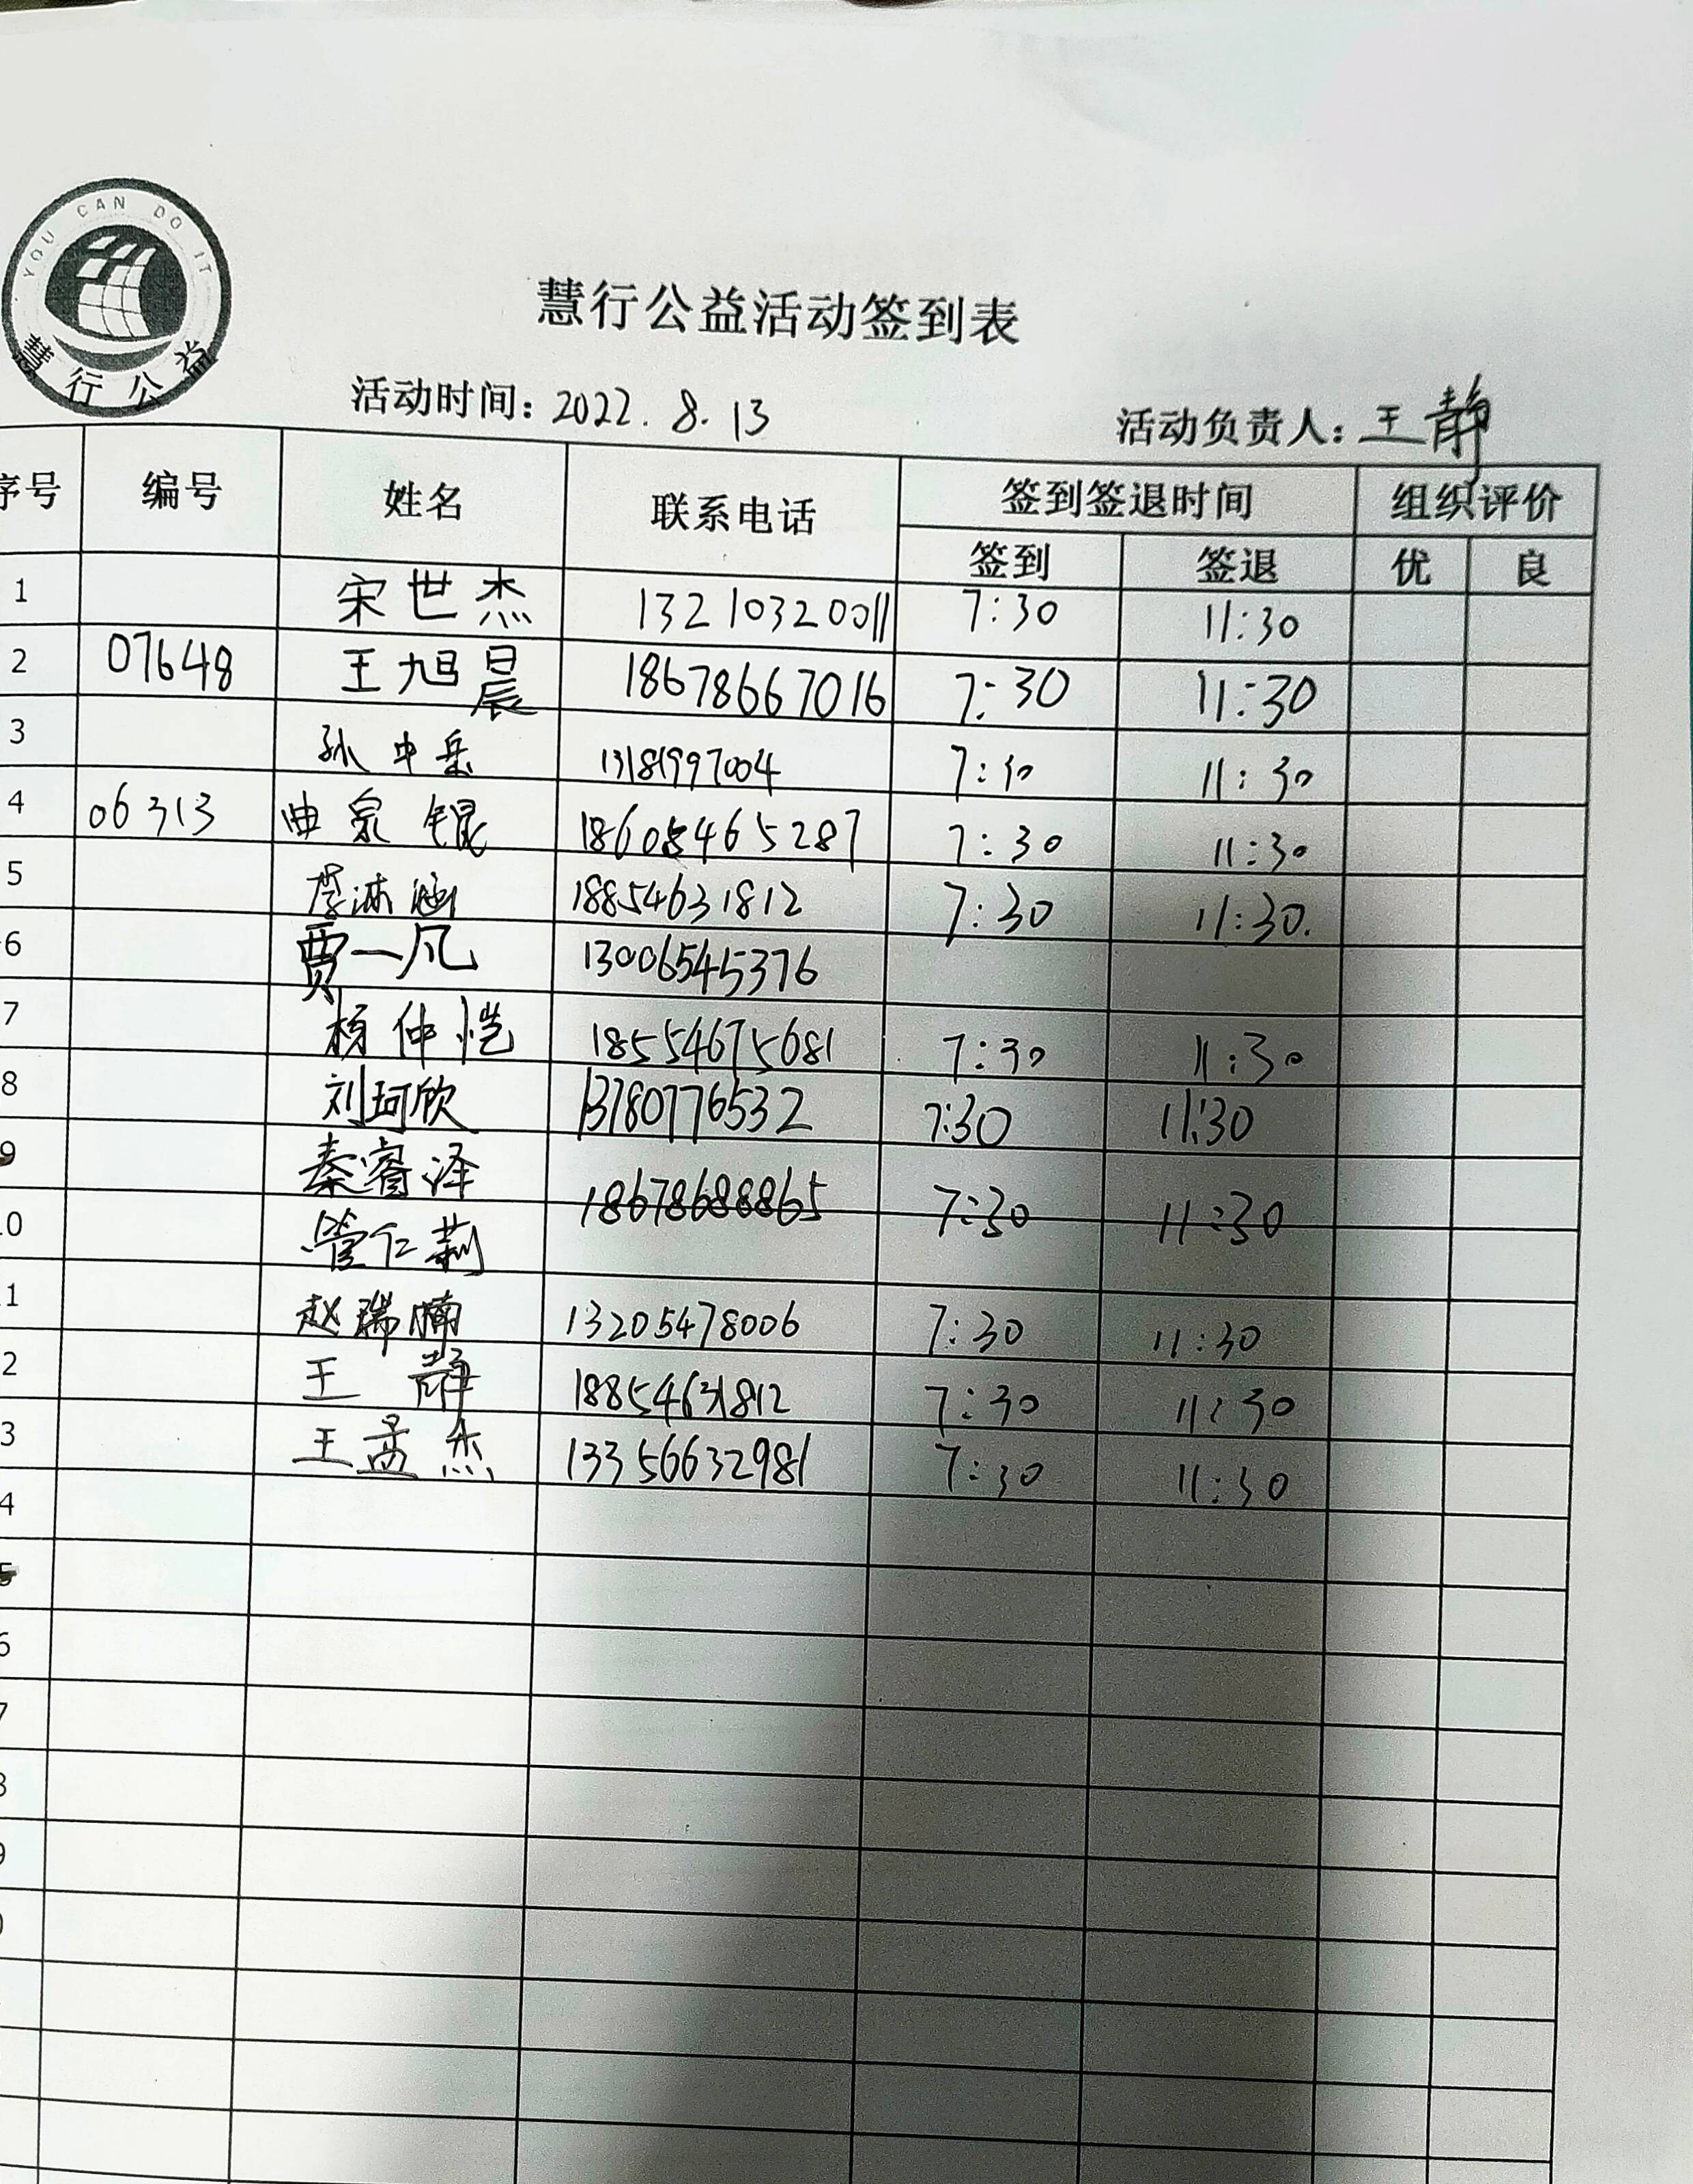 YOU CAN DO IT
慧行公益
慧行公益活动签到表
活动时间：2022.8.13 活动负责人：王静
序号 编号 姓名 联系电话 签到签退时间 组织评价
签到 签退 优 良
1 宋世杰 13210320011 7:30 11:30
2 07648 王旭晨 18678667016 7:30 11:30
3 孙中岳 13181997004 7:30 11:30
4 06313 曲泉锟 18605465287 7:30 11:30
5 李沐涵 18854631812 7:30 11:30.
6 贾一凡 13006545376
7 杨仲恺 18554675681 7:30 11:30
8 刘珂欣 13780776532 7:30 11:30
9 秦睿泽
18678688865 7:30 11:30
0 管仁莉
1 赵瑞楠 13205478006 7:30 11:30
2 王静 18854631812 7:30 11:30
3 王孟杰 13356632981 7:30 11:30
4
5
6
7
8
9
0